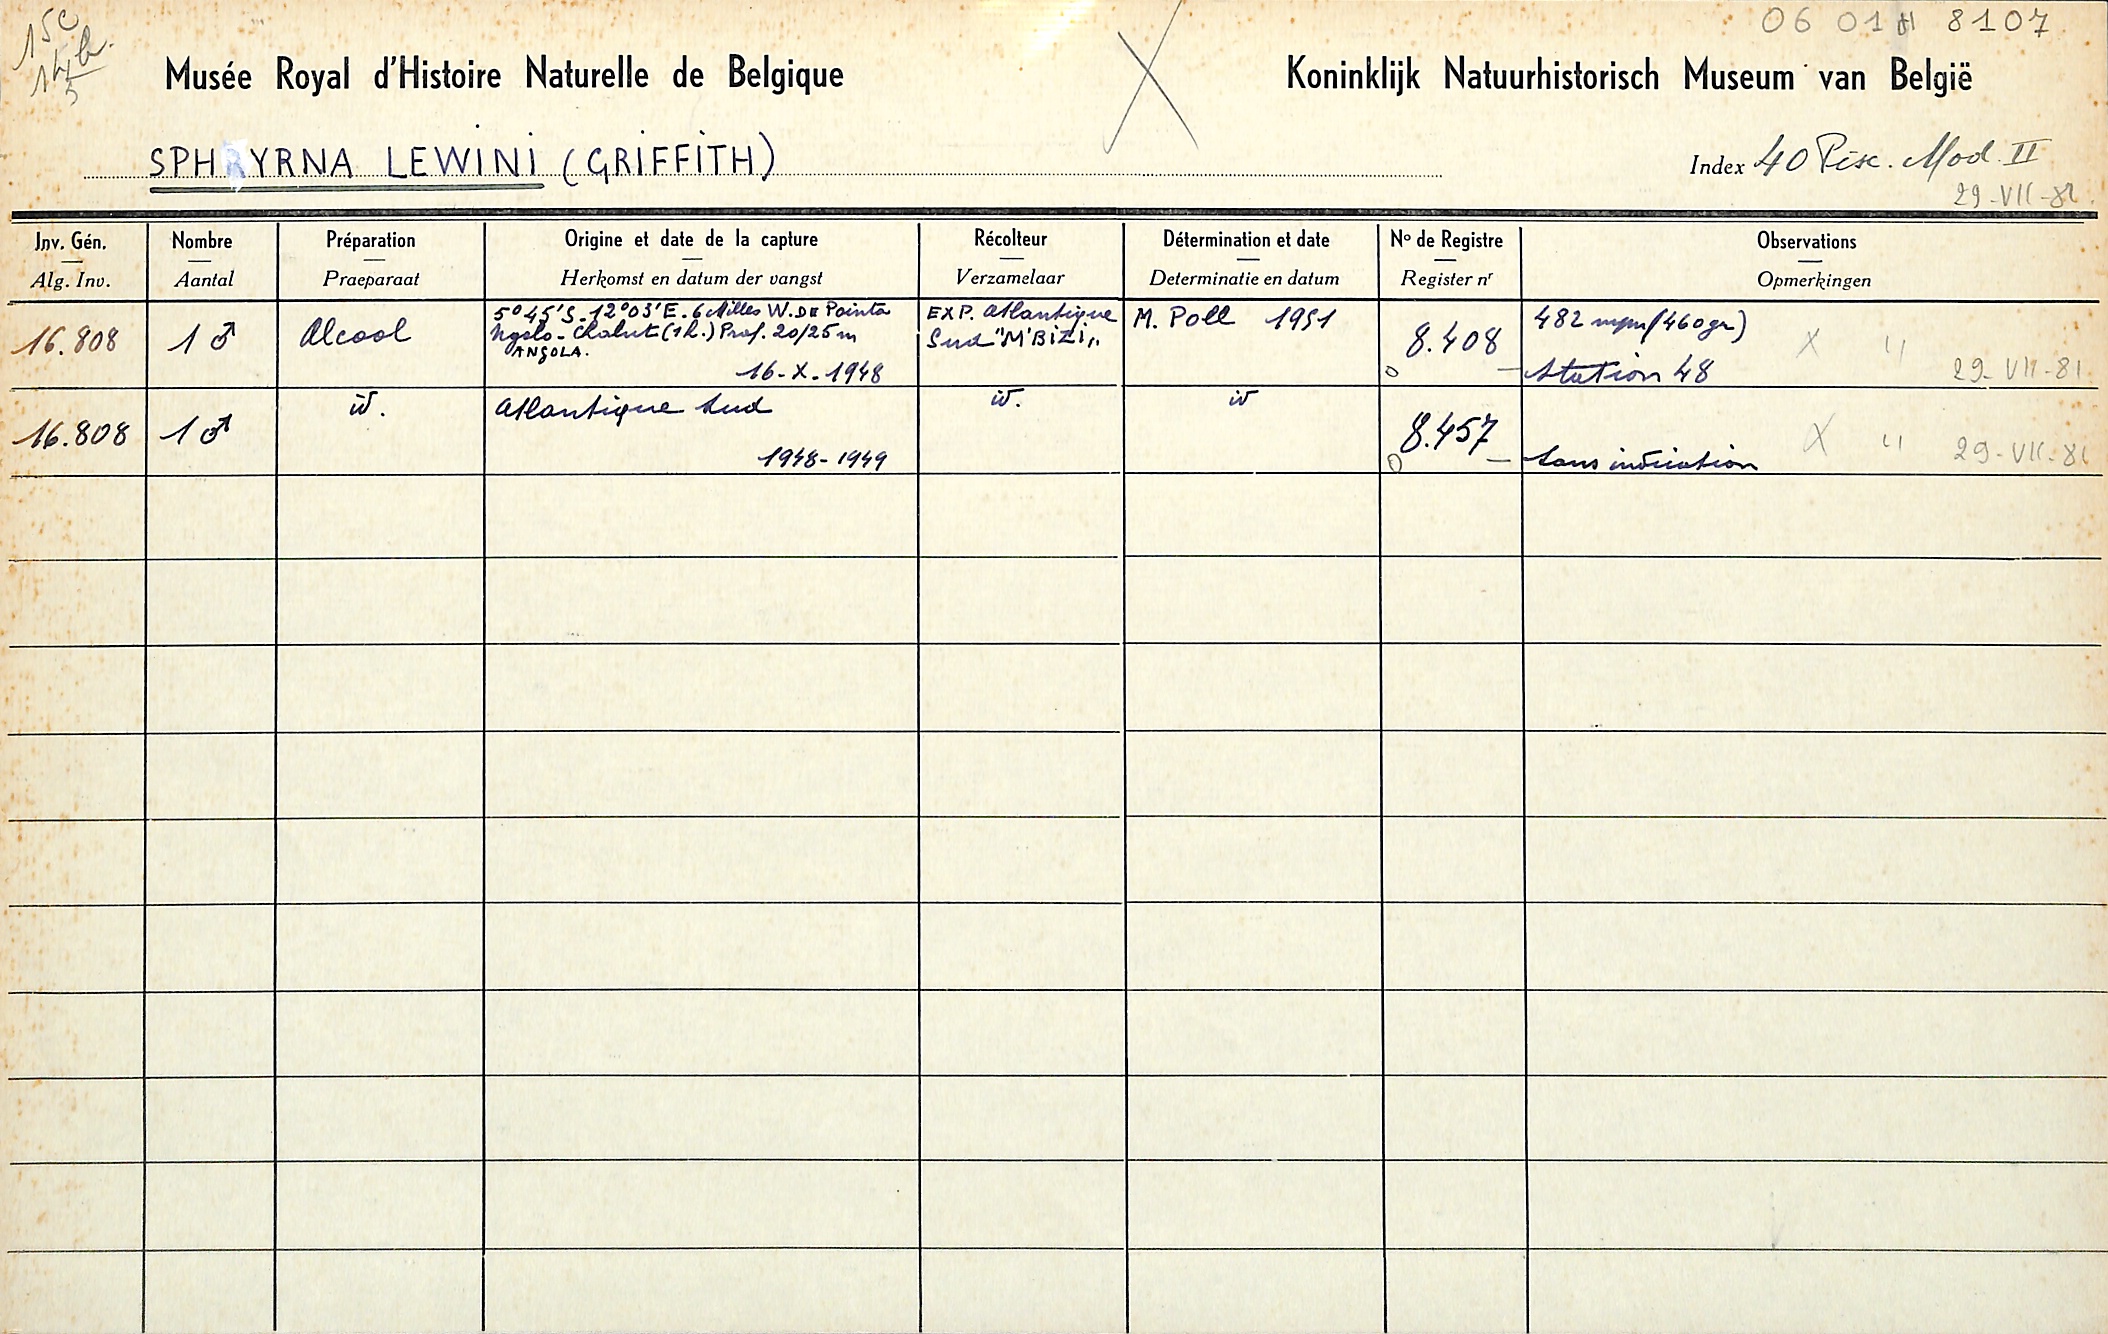 15c
14b.
5
06 01 H 8107
Musée Royal d'Histoire Naturelle de Belgique
Koninklijk Natuurhistorisch Museum van België
SPHYRNA LEWINI (GRIFFITH)
Index 40 Pisc. Mod. II
29-VII-81.
Inv. Gén. Nombre Préparation Origine et date de la capture Récolteur Détermination et date No de Registre Observations
Alg. Inv. Aantal Praeparaat Herkomst en datum der vangst Verzamelaar Determinatie en datum Register nr Opmerkingen
5°45'S-12°03'E. 6 Milles W. DE Pointa EXP. Atlantique M. Poll 1951 482 mm (460gr)
16.808 1 ♂ Alcool Ngelo - Chalut (1h.) Prof. 20/25m Sud "M'Bizi" 8.408 X " 29-VII-81
ANGOLA.
16-X-1948 o - Station 48
16.808 1 ♂ id. Atlantique Sud id. id 8.457 X " 29-VII-81
1948-1949 o - Sans indication